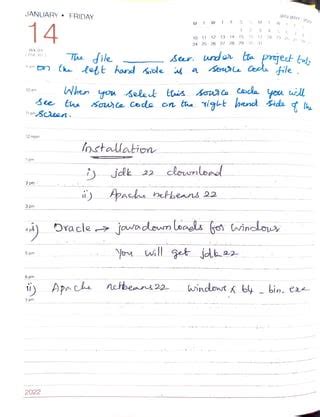 JANUARY • FRIDAY
14
The file ________ seen under the project tab
on the left hand side is a source code file.
When you select this source code you will
see the source code on the right hand side of the
screen.
Installation
i) jdk 22 download
ii) Apache netbeans 22
Oracle → java downloads for windows
You will get jdk 22
ii) Apache netbeans22 windows x 64 - bin. exe
2022